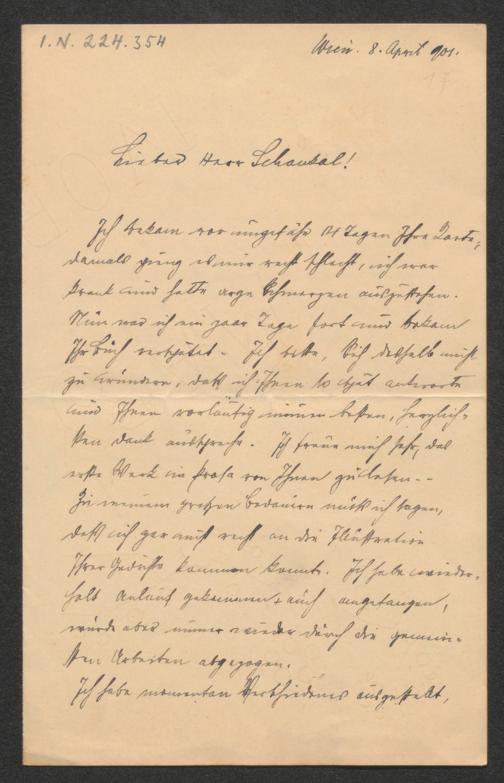 I.N. 224.354
Wien. 8. April 901.
17
Lieber Herr Schaukal!
Ich bekam vor ungefähr 14 Tagen Ihre Karte,
damals gieng es mir recht schlecht, ich war
krank und hatte arge Schmerzen auszustehen.
Nun war ich ein paar Tage fort und bekam
Ihr Buch verspätet. Ich bitte, Sich deßhalb nicht
zu wundern, daß ich Ihnen so spät antworte
und Ihnen vorläufig meinen besten, herzlich-
sten Dank ausspreche. Ich freue mich sehr, das
erste Werk in Prosa von Ihnen zu lesen.-
Zu meinem großen Bedauern muß ich sagen,
daß ich gar nicht recht an die Illustration
Ihrer Gedichte kommen konnte. Ich habe wieder-
holt Anlauf genommen, auch angefangen,
wurde aber immer wieder durch die
sten Arbeiten abgezogen.
Ich habe momentan Verschiedenes ausgestellt,